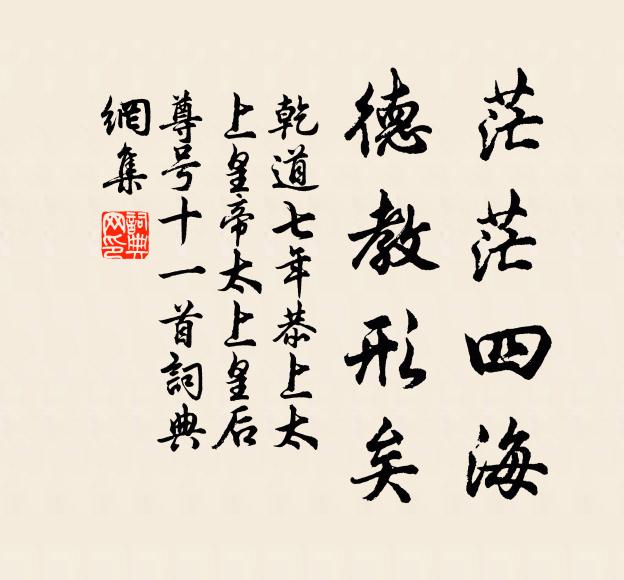 茫茫四海
德教形矣
乾道七年恭上太
上皇帝太上皇后
尊号十一首詞典
網集
詞典
网印